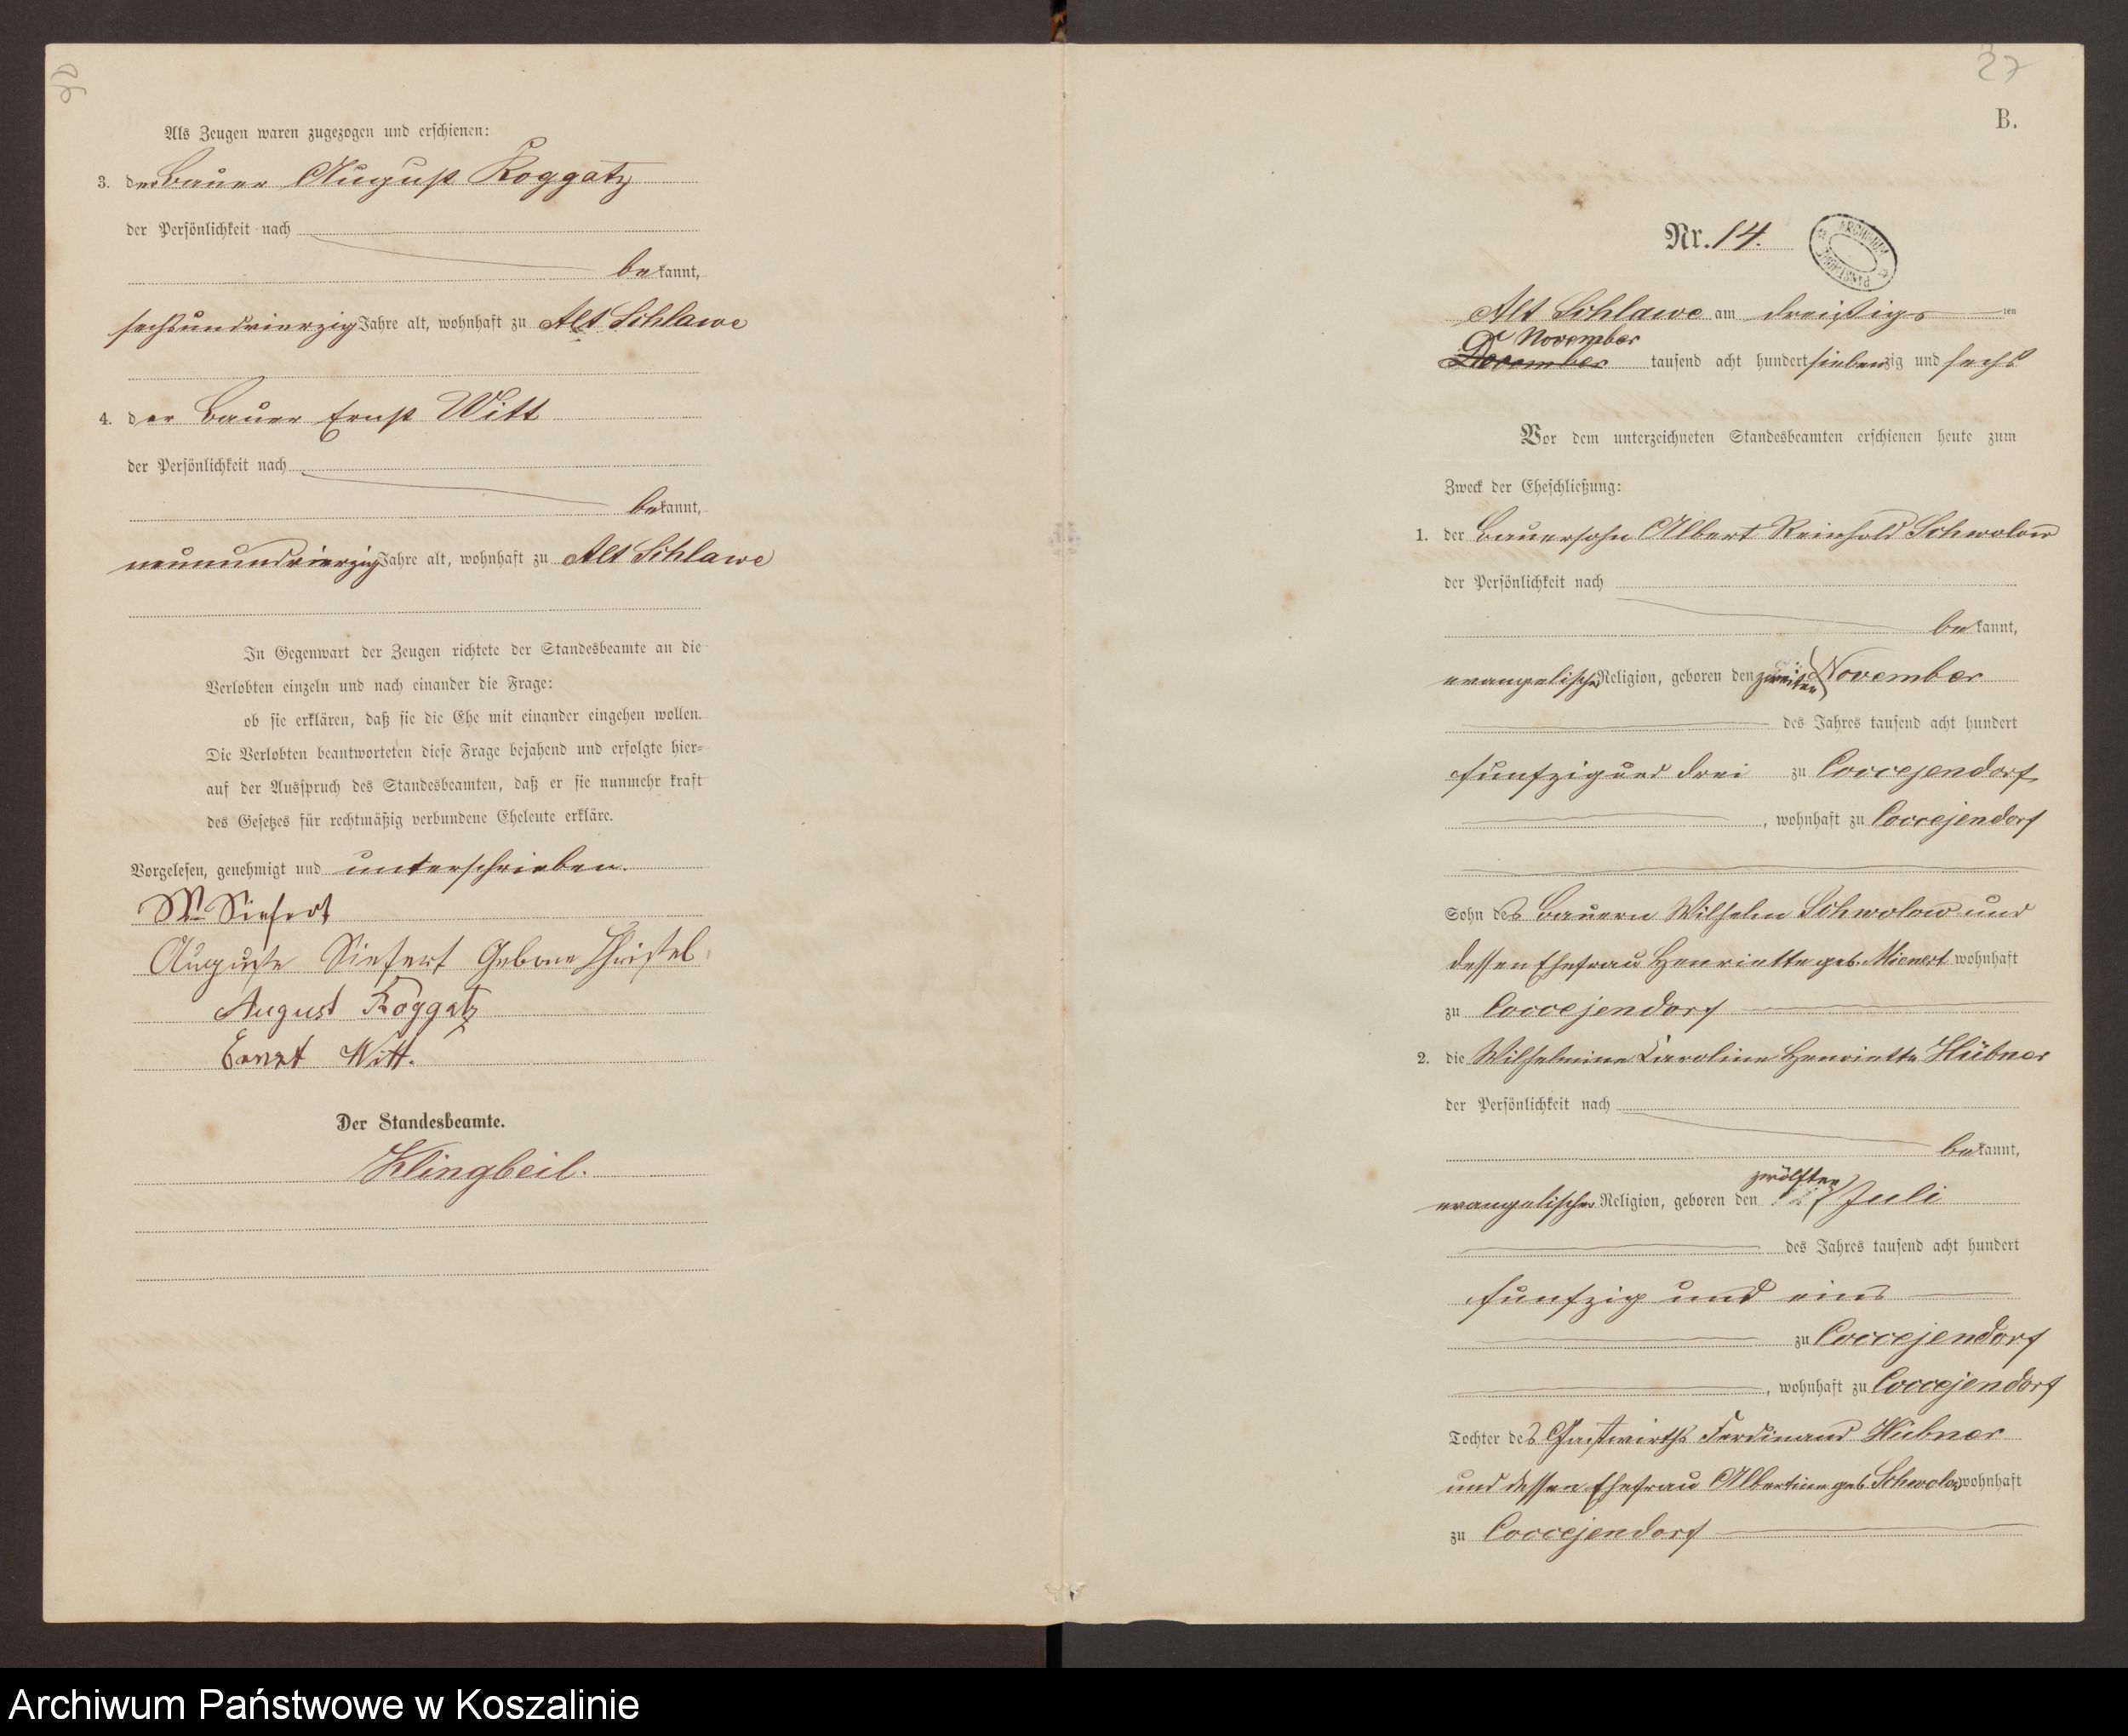 Als Zeugen waren zugezogen und erschienen:
3. der Bauer August Roggatz
der Persönlichkeit nach
bekannt,
sechsundvierzig Jahre alt, wohnhaft zu Alt Schlawe
4. der Bauer Ernst Witt
der Persönlichkeit nach
bekannt,
neunundvierzig Jahre alt, wohnhaft zu Alt Schlawe
In Gegenwart der Zeugen richtete der Standesbeamte an die
Verlobten einzeln und nach einander die Frage:
ob sie erklären, daß sie die Ehe mit einander eingehen wollen.
Die Verlobten beantworteten diese Frage bejahend und erfolgte hier-
auf der Ausspruch des Standesbeamten, daß er sie nunmehr kraft
des Gesetzes für rechtmäßig verbundene Eheleute erkläre.
Vorgelesen, genehmigt und unterschrieben.
W. Siefert
Auguste Siefert Geborne Christel
August Roggatz
Ernst Witt.
Der Standesbeamte.
Klingbeil.
27
B.
Nr. 14.
ARCHIWUM PAŃSTWOWE
Alt Schlawe am dreißigsten
November
December tausend acht hundert siebenzig und sechs
Vor dem unterzeichneten Standesbeamten erschienen heute zum
Zweck der Eheschließung:
1. der Bauersohn Albert Reinhold Schwolow
der Persönlichkeit nach
bekannt,
evangelischer Religion, geboren den zweiten November
des Jahres tausend acht hundert
funfzig und drei zu Coccejendorf
, wohnhaft zu Coccejendorf
Sohn des Bauern Wilhelm Schwolow und
dessen Ehefrau Henriette geb. Mienert wohnhaft
zu Coccejendorf
2. die Wilhelmine Karoline Henriette Hübner
der Persönlichkeit nach
bekannt,
zwölften
evangelischer Religion, geboren den Juli
des Jahres tausend acht hundert
funfzig und eins
zu Coccejendorf
, wohnhaft zu Coccejendorf
Tochter des Gastwirths Ferdinand Hübner
und dessen Ehefrau Albertine geb. Schwolow wohnhaft
zu Coccejendorf
Archiwum Państwowe w Koszalinie